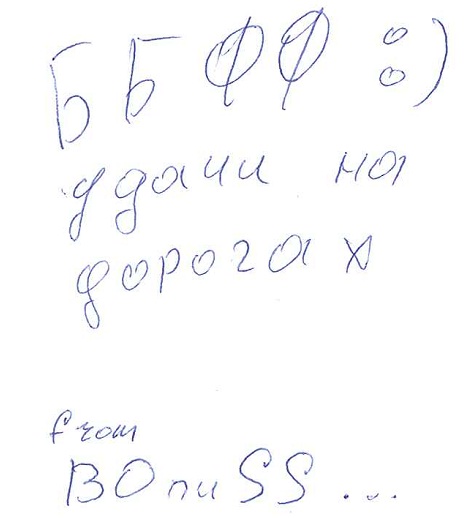 ББФФ :)
удачи на
дорогах
from
BOпиSS...